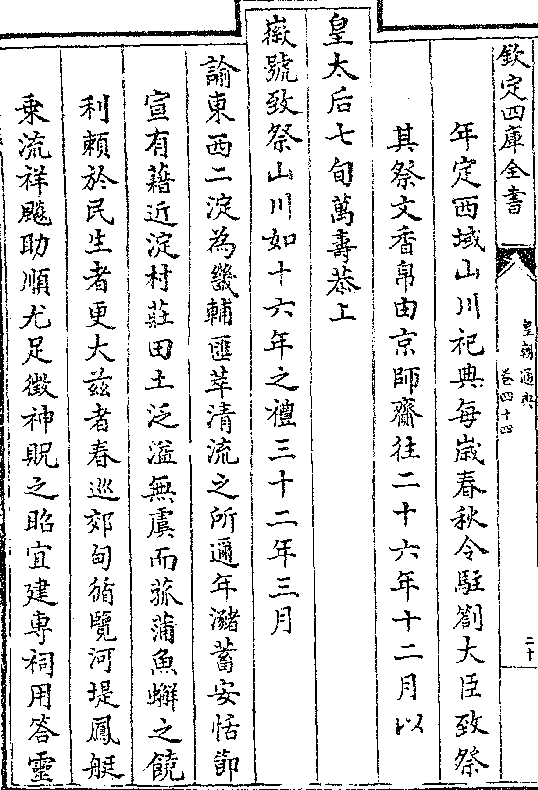 欽定四庫全書
皇朝通典
卷四十四
二十
年定西域山川祀典每歲春秋令駐劄大臣致祭
其祭文香帛由京師齎往二十六年十二月以
皇太后七旬萬壽恭上
徽號致祭山川如十六年之禮三十二年三月
諭東西二淀為畿輔匯萃清流之所邇年瀦蓄安恬節
宣有藉近淀村莊田土泛溢無虞而菰蒲魚蠏之饒
利賴於民生者更大茲者春巡郊甸循覽河堤鳳艇
乗流祥飈助順尤足徵神貺之昭宜建專祠用答靈